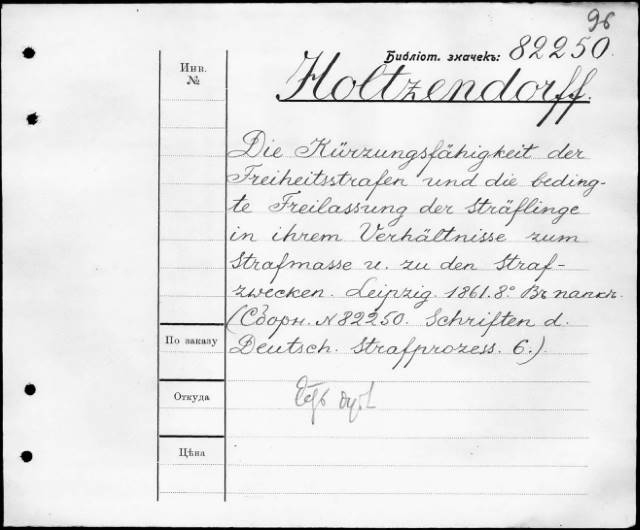 96
Библіот. значекъ: 82250.
Инв.
№
Holtzendorff.
Die Kürzungsfähigkeit der
Freiheitsstrafen und die beding-
te Freilassung der Sträflinge
in ihrem Verhältnisse zum
Strafmasse u. zu den Straf-
zwecken. Leipzig. 1861. 8º. Въ папкѣ.
(Сборн. № 82250. Schriften d.
По заказу
Deutsch. Strafprozess. 6.)
Откуда
Цѣна